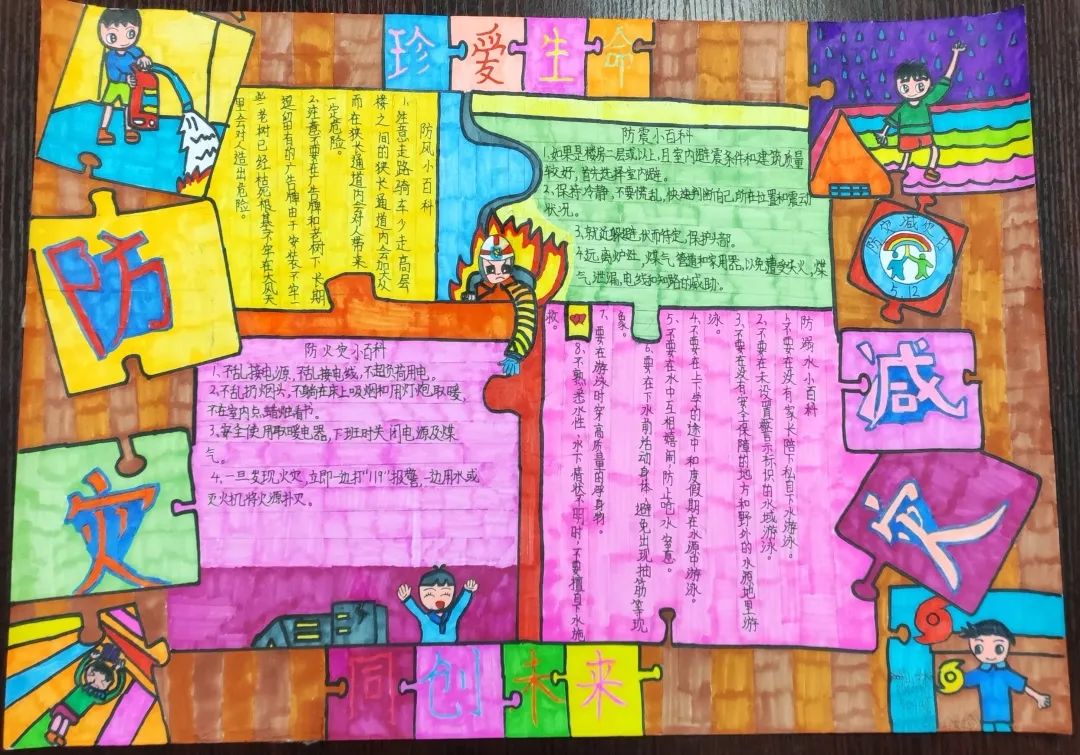 珍爱生命
防
灾
减
灾
防风小百科
1.注意走路骑车少走高层
楼之间的狭长通道内会加大众
而在狭长通道内会对人带来
一定危险。
2.注意不要在广告牌和老树下长期
逗留有的广告牌由于安装不牢一
些老树已经枯死根基不牢在大风天
里会对人造出危险。
防震小百科
1.如果是楼房二层或以上,且室内避震条件和建筑质量
较好,首先选择室内避。
2.保持冷静,不要慌乱,快速判断自己所在位置和震动
状况。
3.就近躲避,伏而待定,保护头部。
4.远离炉灶,煤气管道和家用器,以免遭受失火,煤
气泄漏,电线和短路的威胁。
防灾减灾日
5.12
防火灾小百科
1.不乱接电源,不乱接电线,不超负荷用电。
2.不乱扔烟头,不躺在床上吸烟和用灯炮取暖,
不在室内点蜡烛看书。
3.安全使用取暖电器,下班时关闭电源及煤
气。
4.一旦发现火灾,立即一边打"119"报警,一边用水或
灭火机将火源扑灭。
防溺水小百科
1.不要在没有家长陪下私自下水游泳。
2.不要在未设置警示标识的水域游泳。
3.不要在没有安全保障的地方和野外的水源地里游
泳。
4.不要在上下学的途中和度假期在水源中游泳。
5.不要在水中互相嬉闹,防止呛水窒息。
6.要在下水前活动身体,避免出现抽筋等现
象。
7.要在游泳时穿高质量的浮身物。
8.不熟悉水性,水下情状不明时,不要擅自下水施
救。
同创未来